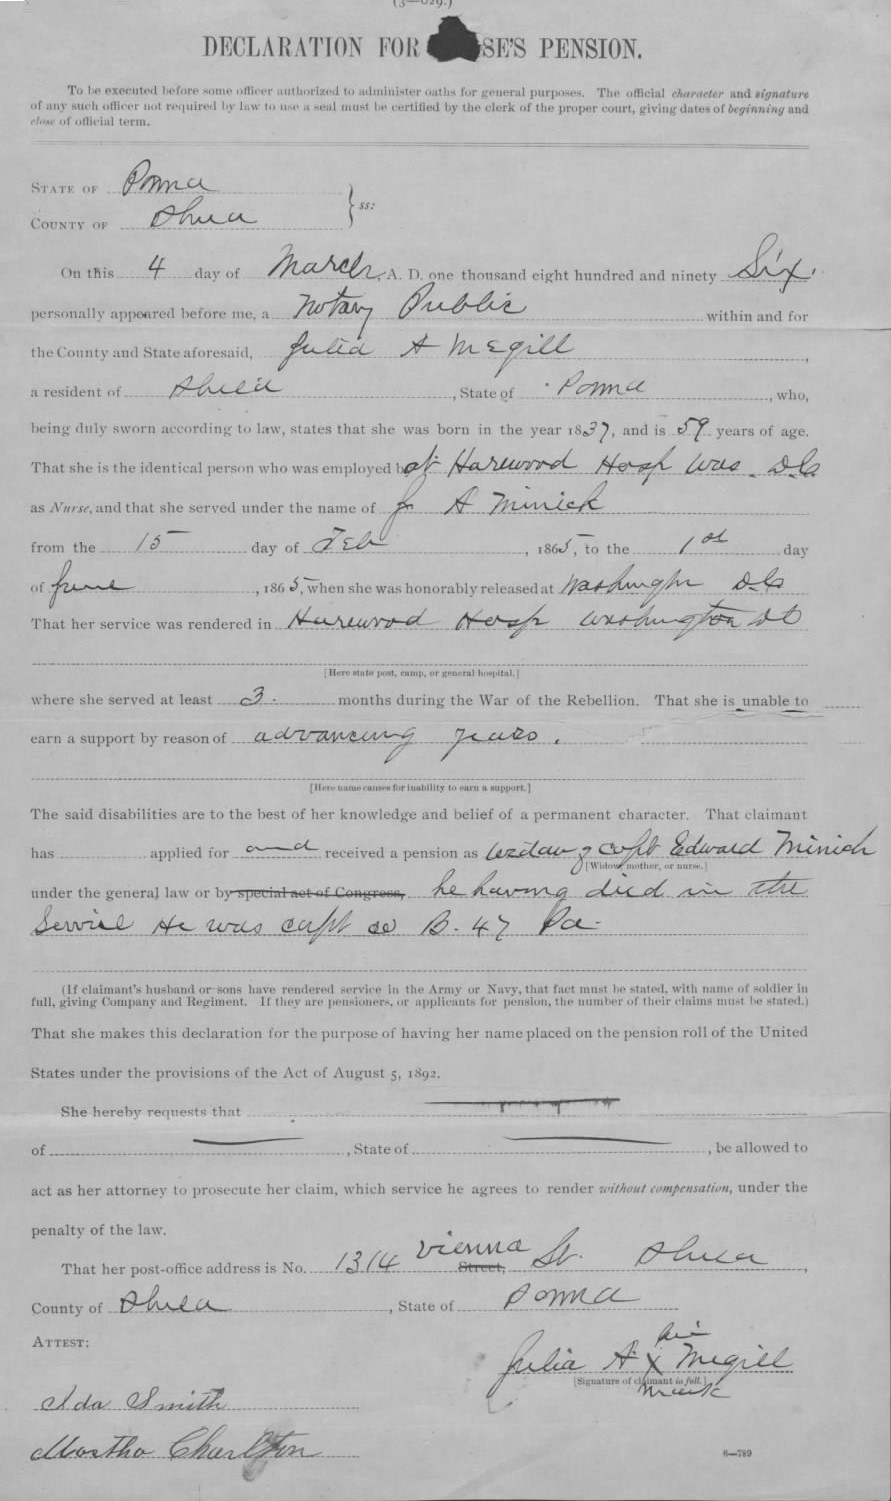 (3—029.)
DECLARATION FOR SE'S PENSION.
To be executed before some officer authorized to administer oaths for general purposes. The official character and signature
of any such officer not required by law to use a seal must be certified by the clerk of the proper court, giving dates of beginning and
close of official term.
STATE OF Penna
COUNTY OF Phila } ss:
On this 4 day of March, A. D. one thousand eight hundred and ninety Six,
personally appeared before me, a Notary Public within and for
the County and State aforesaid, Julia A Megill,
a resident of Phila, State of Penna, who,
being duly sworn according to law, states that she was born in the year 1837, and is 59 years of age.
That she is the identical person who was employed by at Harewood Hosp Was. D.C
as Nurse, and that she served under the name of J A Minick
from the 15 day of Feb, 1865, to the 1st day
of June, 1865, when she was honorably released at Washington D.C
That her service was rendered in Harewood Hosp Washington DC
[Here state post, camp, or general hospital.]
where she served at least 3. months during the War of the Rebellion. That she is unable to
earn a support by reason of advancing years.
[Here name causes for inability to earn a support.]
The said disabilities are to the best of her knowledge and belief of a permanent character. That claimant
has applied for and received a pension as widow of Capt Edward Minich
[Widow, mother, or nurse.]
under the general law or by special act of Congress, he having died in the
Service He was capt co B. 47 Pa.
(If claimant's husband or sons have rendered service in the Army or Navy, that fact must be stated, with name of soldier in
full, giving Company and Regiment. If they are pensioners, or applicants for pension, the number of their claims must be stated.)
That she makes this declaration for the purpose of having her name placed on the pension roll of the United
States under the provisions of the Act of August 5, 1892.
She hereby requests that
of , State of , be allowed to
act as her attorney to prosecute her claim, which service he agrees to render without compensation, under the
penalty of the law.
That her post-office address is No. 1314 Vienna Street, St. Phila,
County of Phila, State of Penna
ATTEST:
her
Julia A. X Megill
[Signature of claimant in full.]
mark
Ida Smith
Martha Charlton
6—789